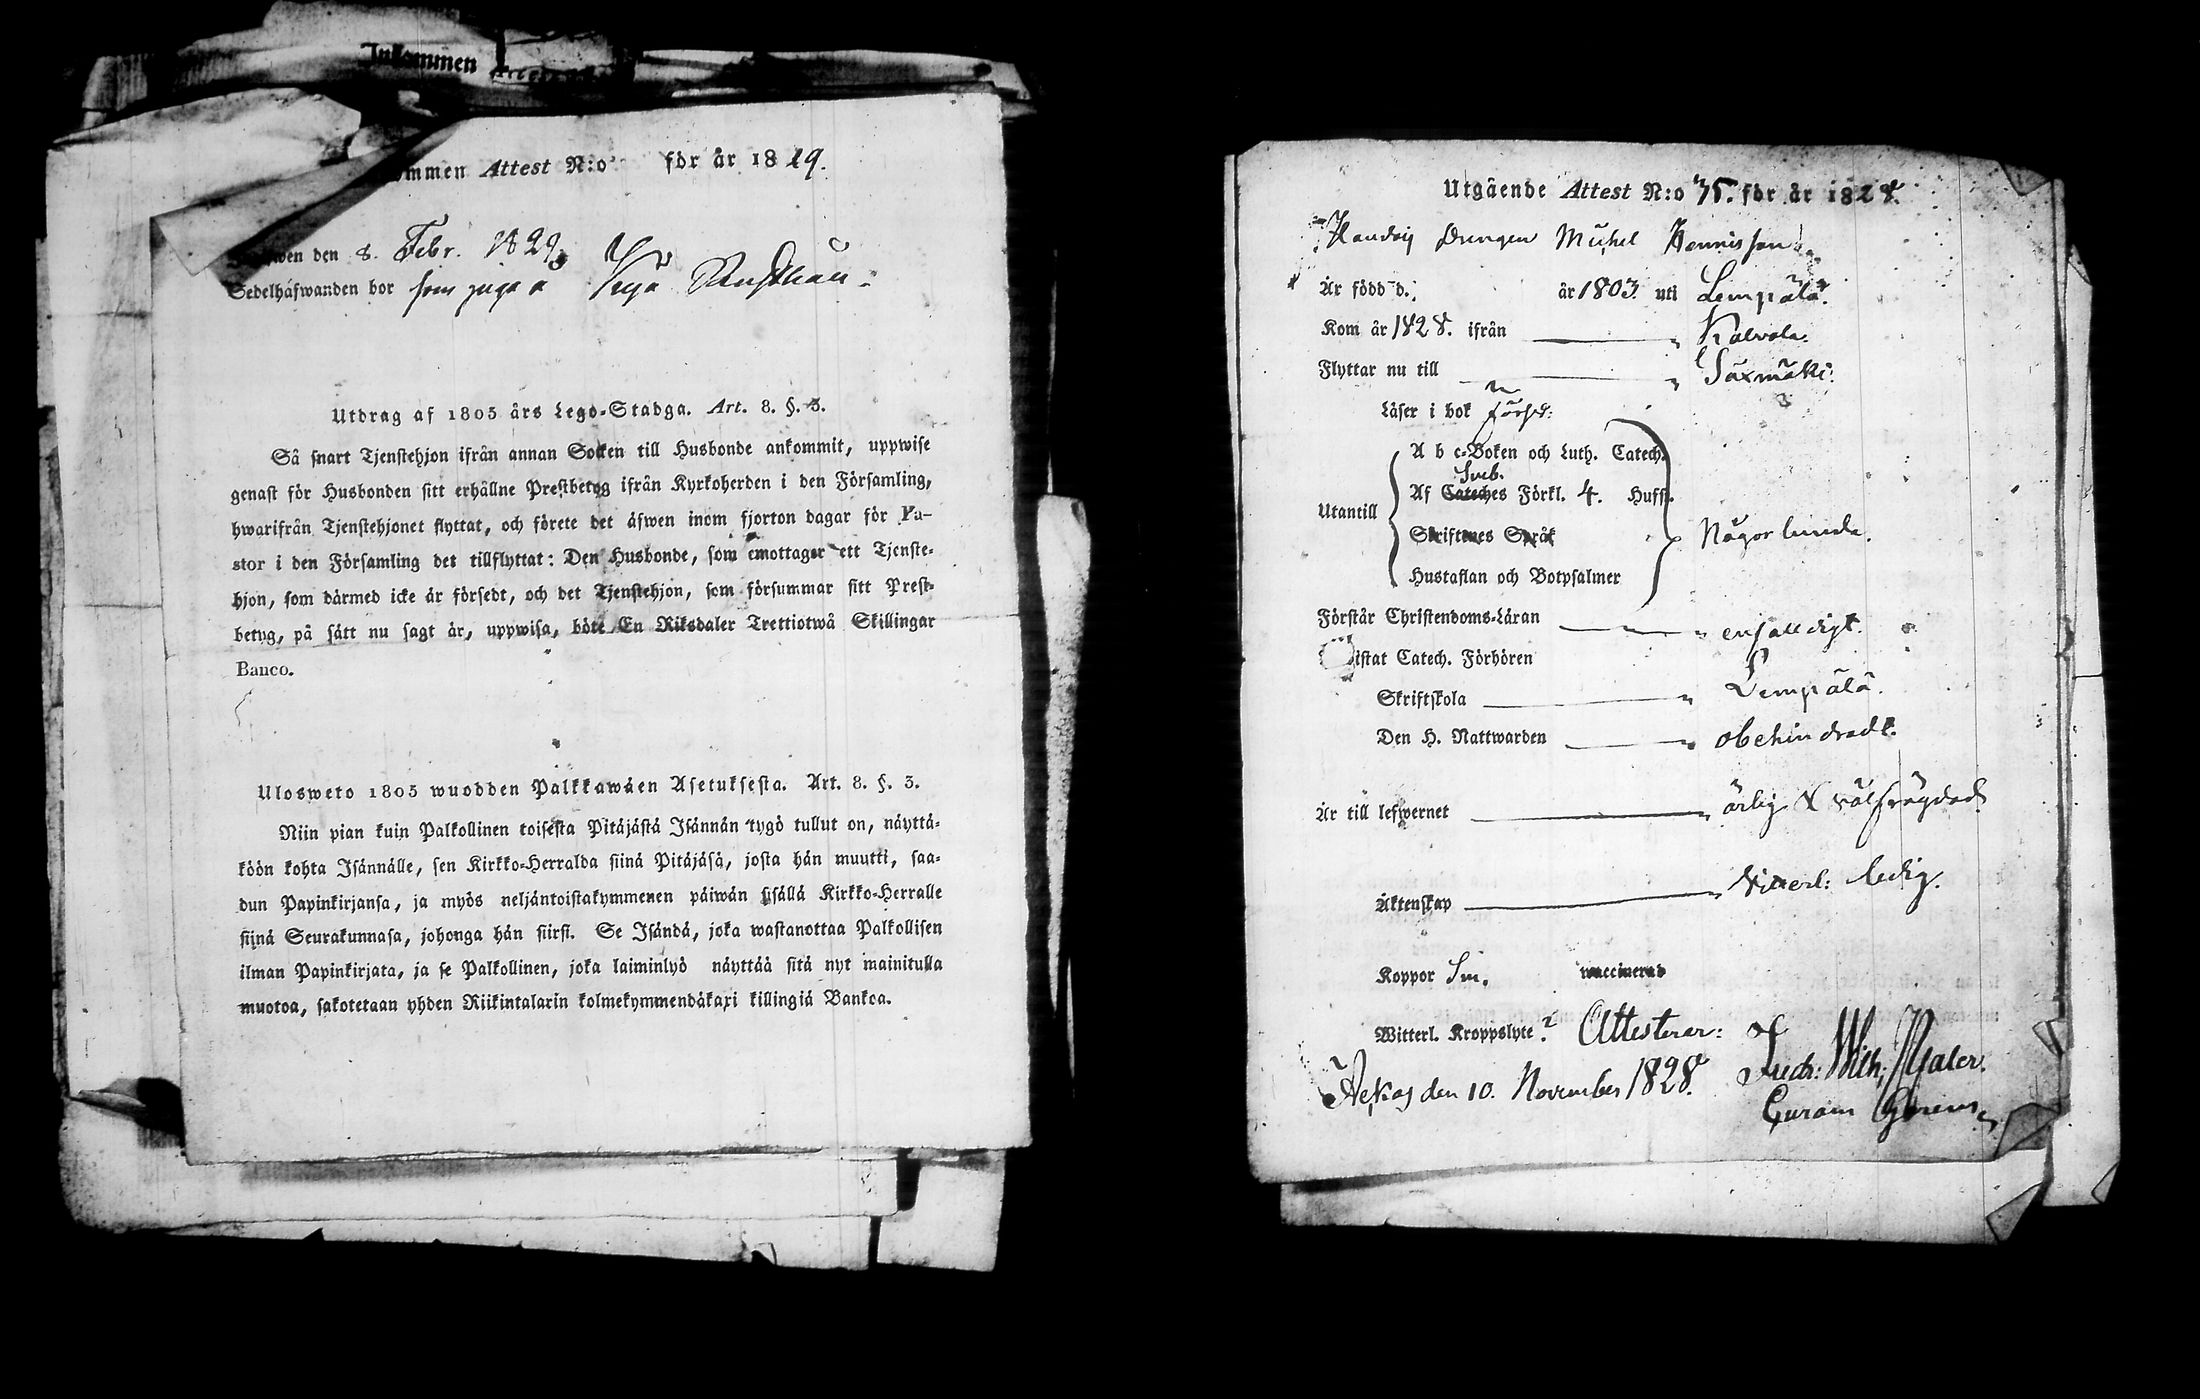 Inkommen Attest
ommen Attest N:o för år 1829.
wen den 8. Febr. 1829
Sedelhafwanden bor som piga
Utdrag af 1805 års Lego-Stadga. Art. 8. §. 3.
Så snart Tjenstehjon ifrån annan Socken till Husbonde ankommit, uppwise
genast för Husbonden sitt erhållne Prestbetyg ifrån Kyrkoherden i den Församling,
hwarifrån Tjenstehjonet flyttat, och förete det äfwen inom fjorton dagar för Pa-
stor i den Församling det tillflyttat: Den Husbonde, som emottager ett Tjenste-
hjon, som därmed icke är försedt, och det Tjenstehjon, som försummar sitt Prest-
betyg, på sätt nu sagt är, uppwisa, böte En Riksdaler Trettiotwå Skillingar
Banco.
Ulosweto 1805 wuodden Palkkawäen Asetuksesta. Art. 8. §. 3.
Niin pian kuin Palkollinen toisesta Pitäjästä Isännän tygö tullut on, näyttä-
köön kohta Isännälle, sen Kirkko-Herralda siinä Pitäjäsä, josta hän muutti, saa-
dun Papinkirjansa, ja myös neljäntoistakymmenen päiwän sisällä Kirkko-Herralle
siinä Seurakunnasa, johonga hän siirsi. Se Isändä, joka wastanottaa Palkollisen
ilman Papinkirjata, ja se Palkollinen, joka laiminlyö näyttää sitä nyt mainitulla
muotoa, sakotetaan yhden Riikintalarin kolmekymmendäkaxi killingiä Bankca.
Utgående Attest N:o 75. för år 1828.
Drengen Michel Hannisson
Är född d. år 1803. uti Lempälä.
Kom år 1828. ifrån Kalvola.
Flyttar nu till Sáxmäki.
Läser i bok försv:
A b c-Boken och Luth. Catech.
Sveb.
Utantill Af Cateches Förkl. 4. Huff.
Skriftenes Språk Någorlunda.
Hustaflan och Botpsalmer
Förstår Christendoms-Läran enfalldigt.
istat Catech. Förhören
Skriftskola Lempälä.
Den H. Nattwarden obehindradt.
Är till lefwernet ärlig & välfrägdad
Äktenskap Vitterl: ledig.
Koppor vaccinerad
Witterl. Kroppslyte? Attesterar:
den 10. November 1828. Fredr: Wilh: